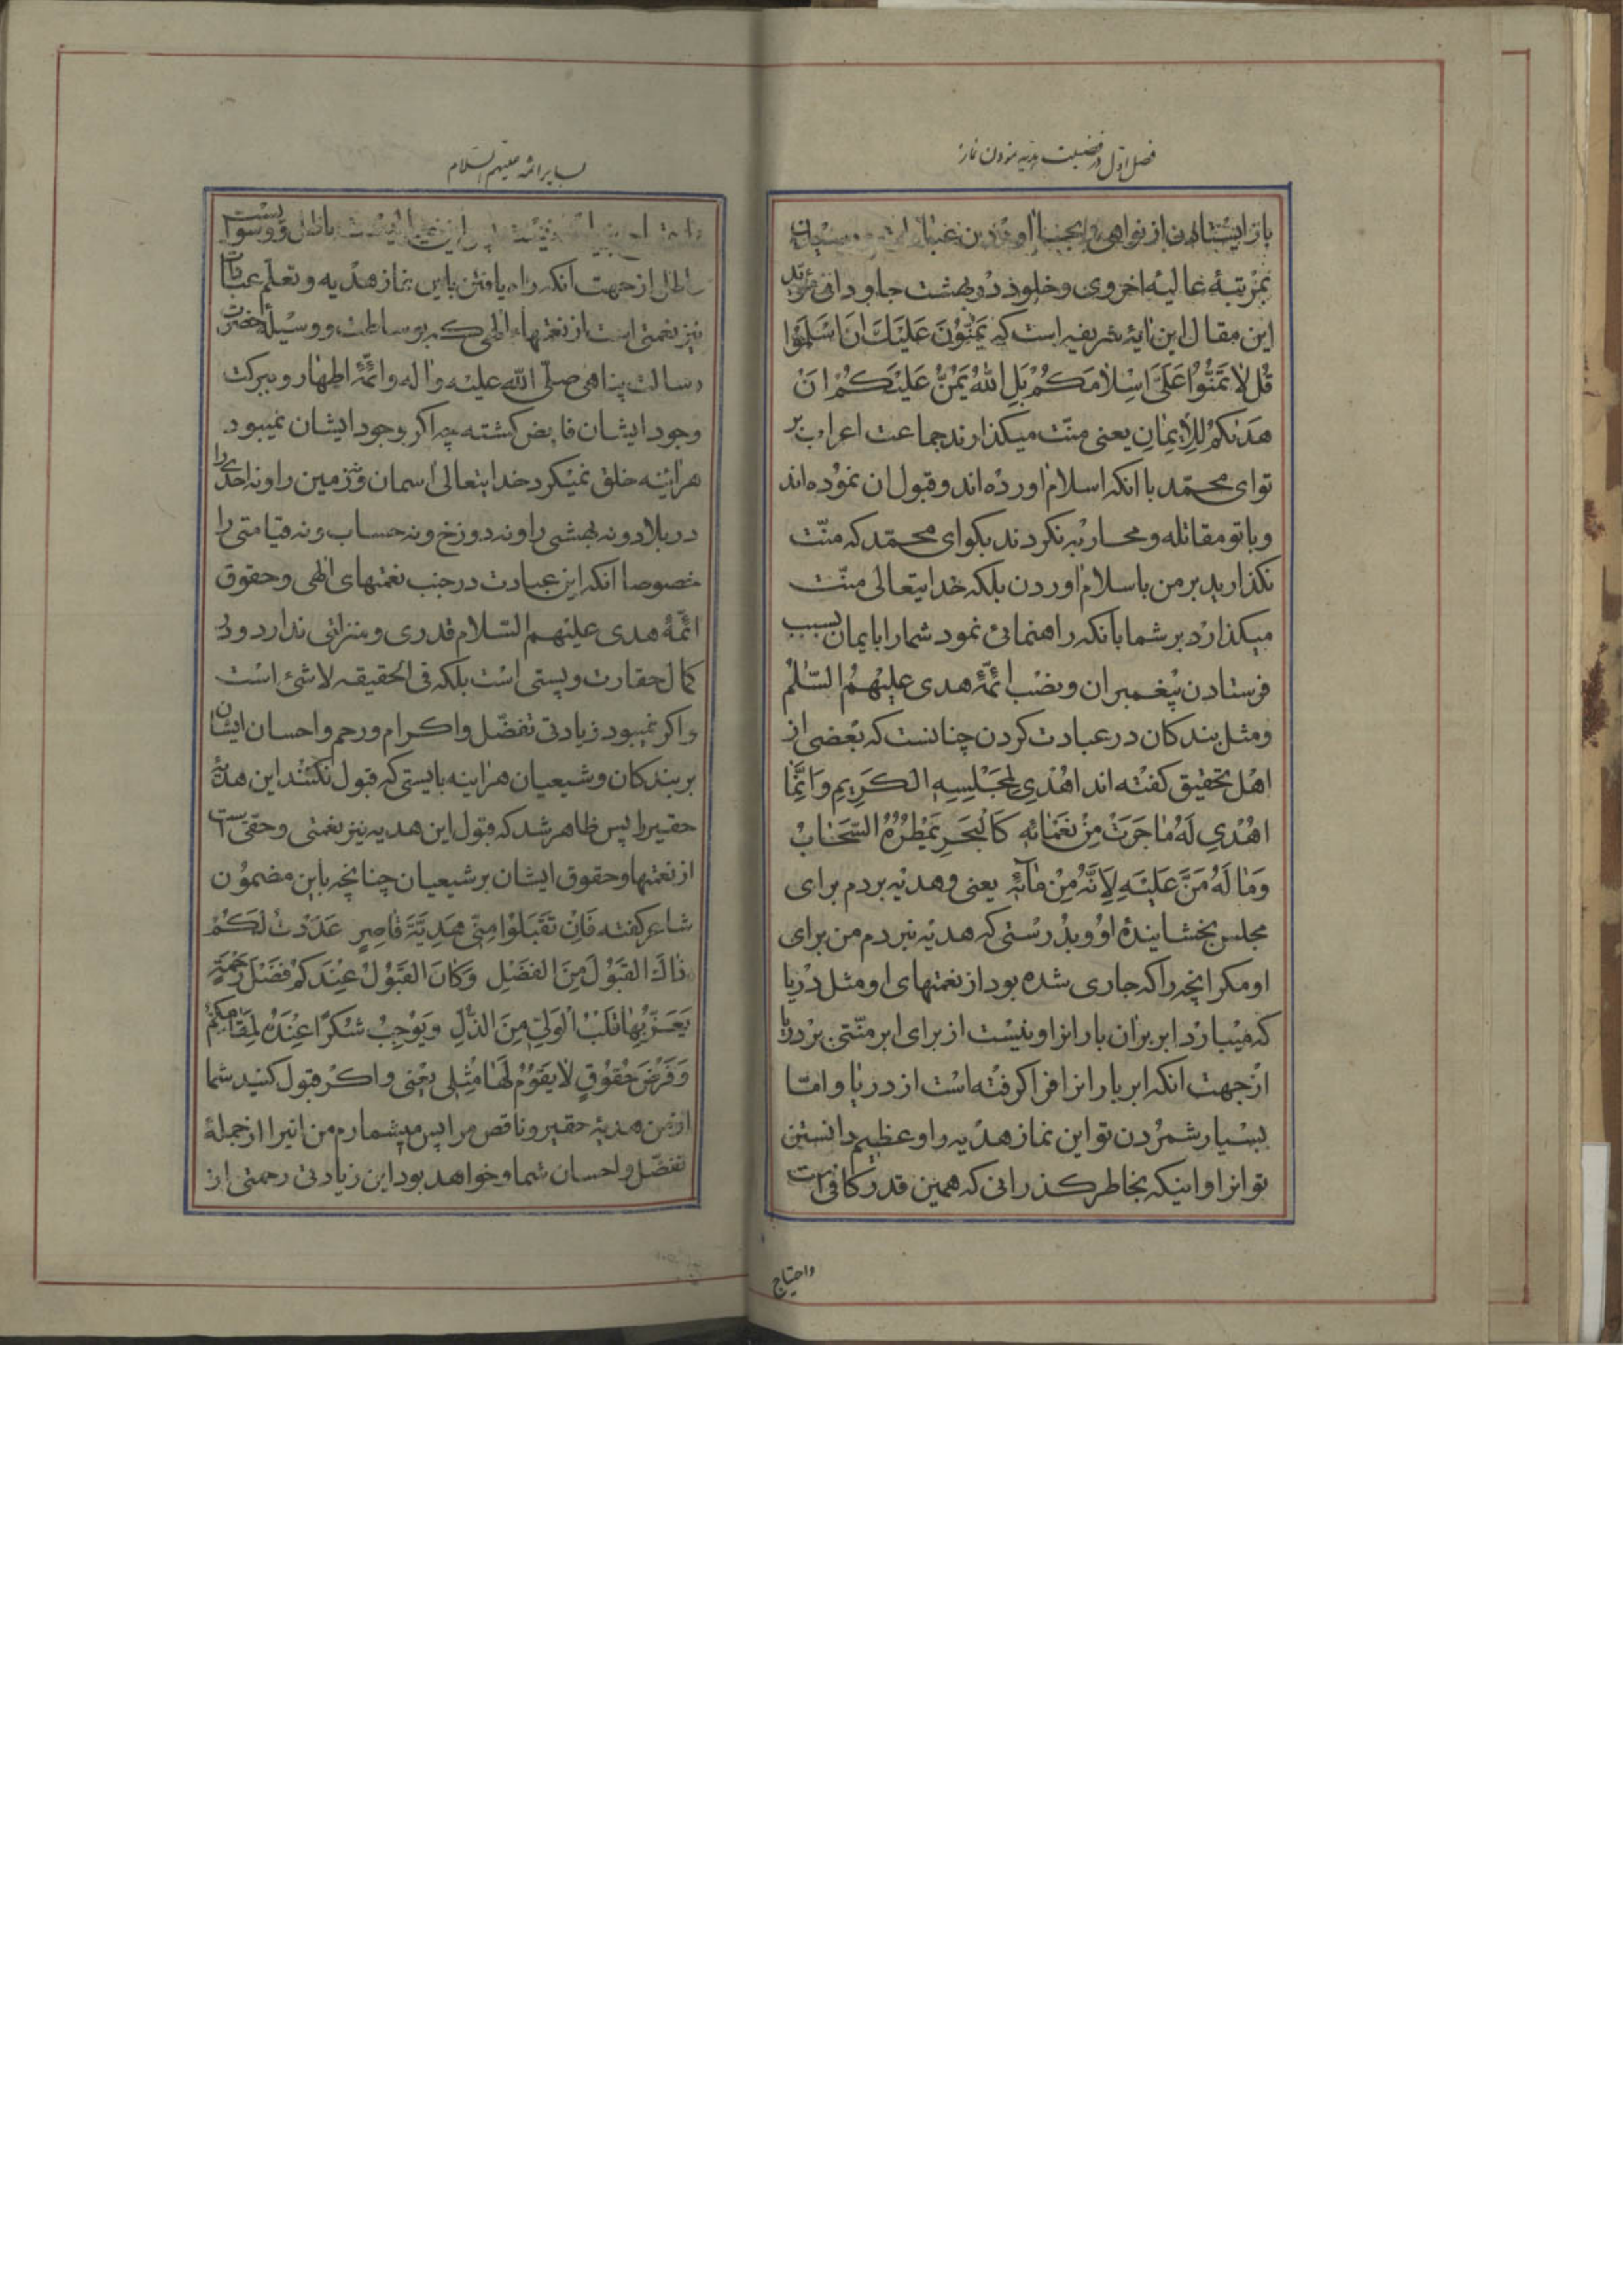 فصل اول در فضیلت هدیه نمودن نماز
باز ایستادن از نواهی و بجا اوردن عبادات
بمرتبهٔ عالیهٔ اخروی و خلود در بهشت جاودانی مؤید
این مقال این ایهٔ شریفه است که یَمُنُّونَ عَلَیْكَ اَنْ اَسْلَمُوا
قُلْ لا تَمُنُّوا عَلَیَّ اِسْلامَکُمْ بَلِ اللهُ یَمُنُّ عَلَیْکُمْ اَنْ
هَدٰیکُمْ لِلْاِیمٰانِ یعنی منّت میکذارند جماعت اعراب بر
تو ای محمّد با انکه اسلام اورده‌اند و قبول ان نموده‌اند
و با تو مقاتله و محاربه نکردند بکو ای محمّد که منّت
نکذارید بر من باسلام اوردن بلکه خدایتعالی منّت
میکذارد بر شما بآنکه راهنمائی نمود شما را بایمان بسبب
فرستادن پیغمبران و نصب ائمّهٔ هدی علیهم السّلم
و مثل بندکان در عبادت کردن چنانست که بعضی از
اهل تحقیق کفته‌اند اهْدِی لِمَجْلِسِهِ الکَرِیمِ وَ اِنَّمٰا
اهْدِی لَهُ مٰا جَرَتْ مِنْ نَعْمٰائِهِ کَالْبَحْرِ یَمْطُرُهُ السَّحٰابُ
وَ مٰا لَهُ مَنٌّ عَلَیْهِ لِاَنَّهُ مِنْ مٰآئِهِ یعنی و هدیه بردم برای
مجلس بخشایندهٔ او و بدرستی که هدیه نبردم من برای
او مکر انچه را که جاری شده بود از نعمتهای او مثل دریا
که میبارد ابر بران باران او نیست از برای ابر منّتی بر دریا
از جهت انکه ابر باران را فرا کرفته است از دریا و امّا
بسیار شمردن تو این نماز هدیه را و عظیم دانستن
تو انرا و اینکه بخاطر کذرانی که همین قدر کافی است
واحتیاج
بسایر ائمه علیهم السلام
باطل و وسواسیست
باطل از جهت انکه راه یافتن باین نماز هدیه و تعلّم عبادات
نیز نعمتی است از نعمتهاء الهی که بوساطت و وسیلهٔ حضرت
رسالت پناهی صلّی الله علیه واله و ائمّهٔ اطهار و ببرکت
وجود ایشان فایض کشته چه اکر وجود ایشان نمیبود
هراینه خلق نمیکرد خدایتعالی اسمان و زمین را و نه احدی را
در بلاد و نه بهشتی را و نه دوزخ و نه حساب و نه قیامتی را
خصوصا انکه این عبادت در جنب نعمتهای الهی و حقوق
ائمّهٔ هدی علیهم السّلام قدری و منزلتی ندارد و در
کمال حقارت و پستی است بلکه فی الحقیقه لا شئ است
و اکر نمیبود زیادتی تفضّل و اکرام و رحم و احسان ایشان
بر بندکان و شیعیان هراینه بایستی که قبول نکنند این هدیهٔ
حقیر را پس ظاهر شد که قبول این هدیه نیز نعمتی و حقی است
از نعمتها و حقوق ایشان بر شیعیان چنانچه باین مضمون
شاعر کفته فَاِنْ تَقْبَلُوا مِنّی هَدِیَّةَ قٰاصِرٍ عَدَدْتُ لَکُمْ
ذٰاكَ القَبُولَ مِنَ الفَضْلِ وَ کٰانَ القَبُولُ عِنْدَکُمْ فَضْلَ رَحْمَةٍ
یَعَزُّ بِهٰا قَلْبُ الْوَلِیِّ مِنَ الذُّلِّ وَ یُوجِبُ شُکْرًا عِنْدَهُ لِمَقٰامِکُمْ
وَ فَرْضَ حُقُوقٍ لٰا یَقُومُ لَهٰا مِثْلِی یعنی و اکر قبول کنید شما
از من هدیهٔ حقیر و ناقص مرا پس میشمارم من انرا از جملهٔ
تفضّل و احسان شما و خواهد بود این زیادتی رحمتی از